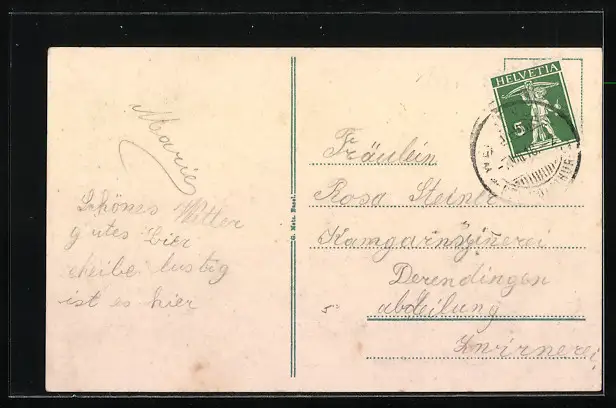 Marie
Schönes Wetter
gutes Bier
cheibe lustig
ist es hier
G. Metz, Basel.
HELVETIA
5
Fräulein
Rosa Steiner
Kamgarnspinerei
Derendingen
abdeilung
Zwirnerei